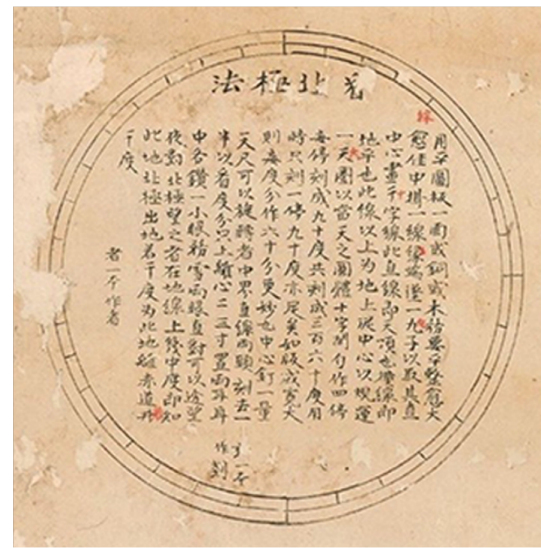 看北極法
用平圓板一面或銅或木皆要平整寬大
愈佳中掛一線線端墜一丸子以取其直
中心畫十字線此直線即天頂也橫線即
地平也此線以上為地上從中心以規運
一天圈以當天之圓體十字間勻作四停
每停刻成九十度共刻成三百六十度用
時只刻一停九十度亦足矣如版或寬大
則每度分作六十分更妙也中心釘一量
天尺可以旋轉者中界直線兩頭刻去一
半以看度分只上離心二三寸置兩耳耳
中各鑽一小眼務令兩眼直對可以透望
夜對北極望之者在地線上幾十度即知
此地北極出地若干度為此地離赤道若
干度
者一本作看